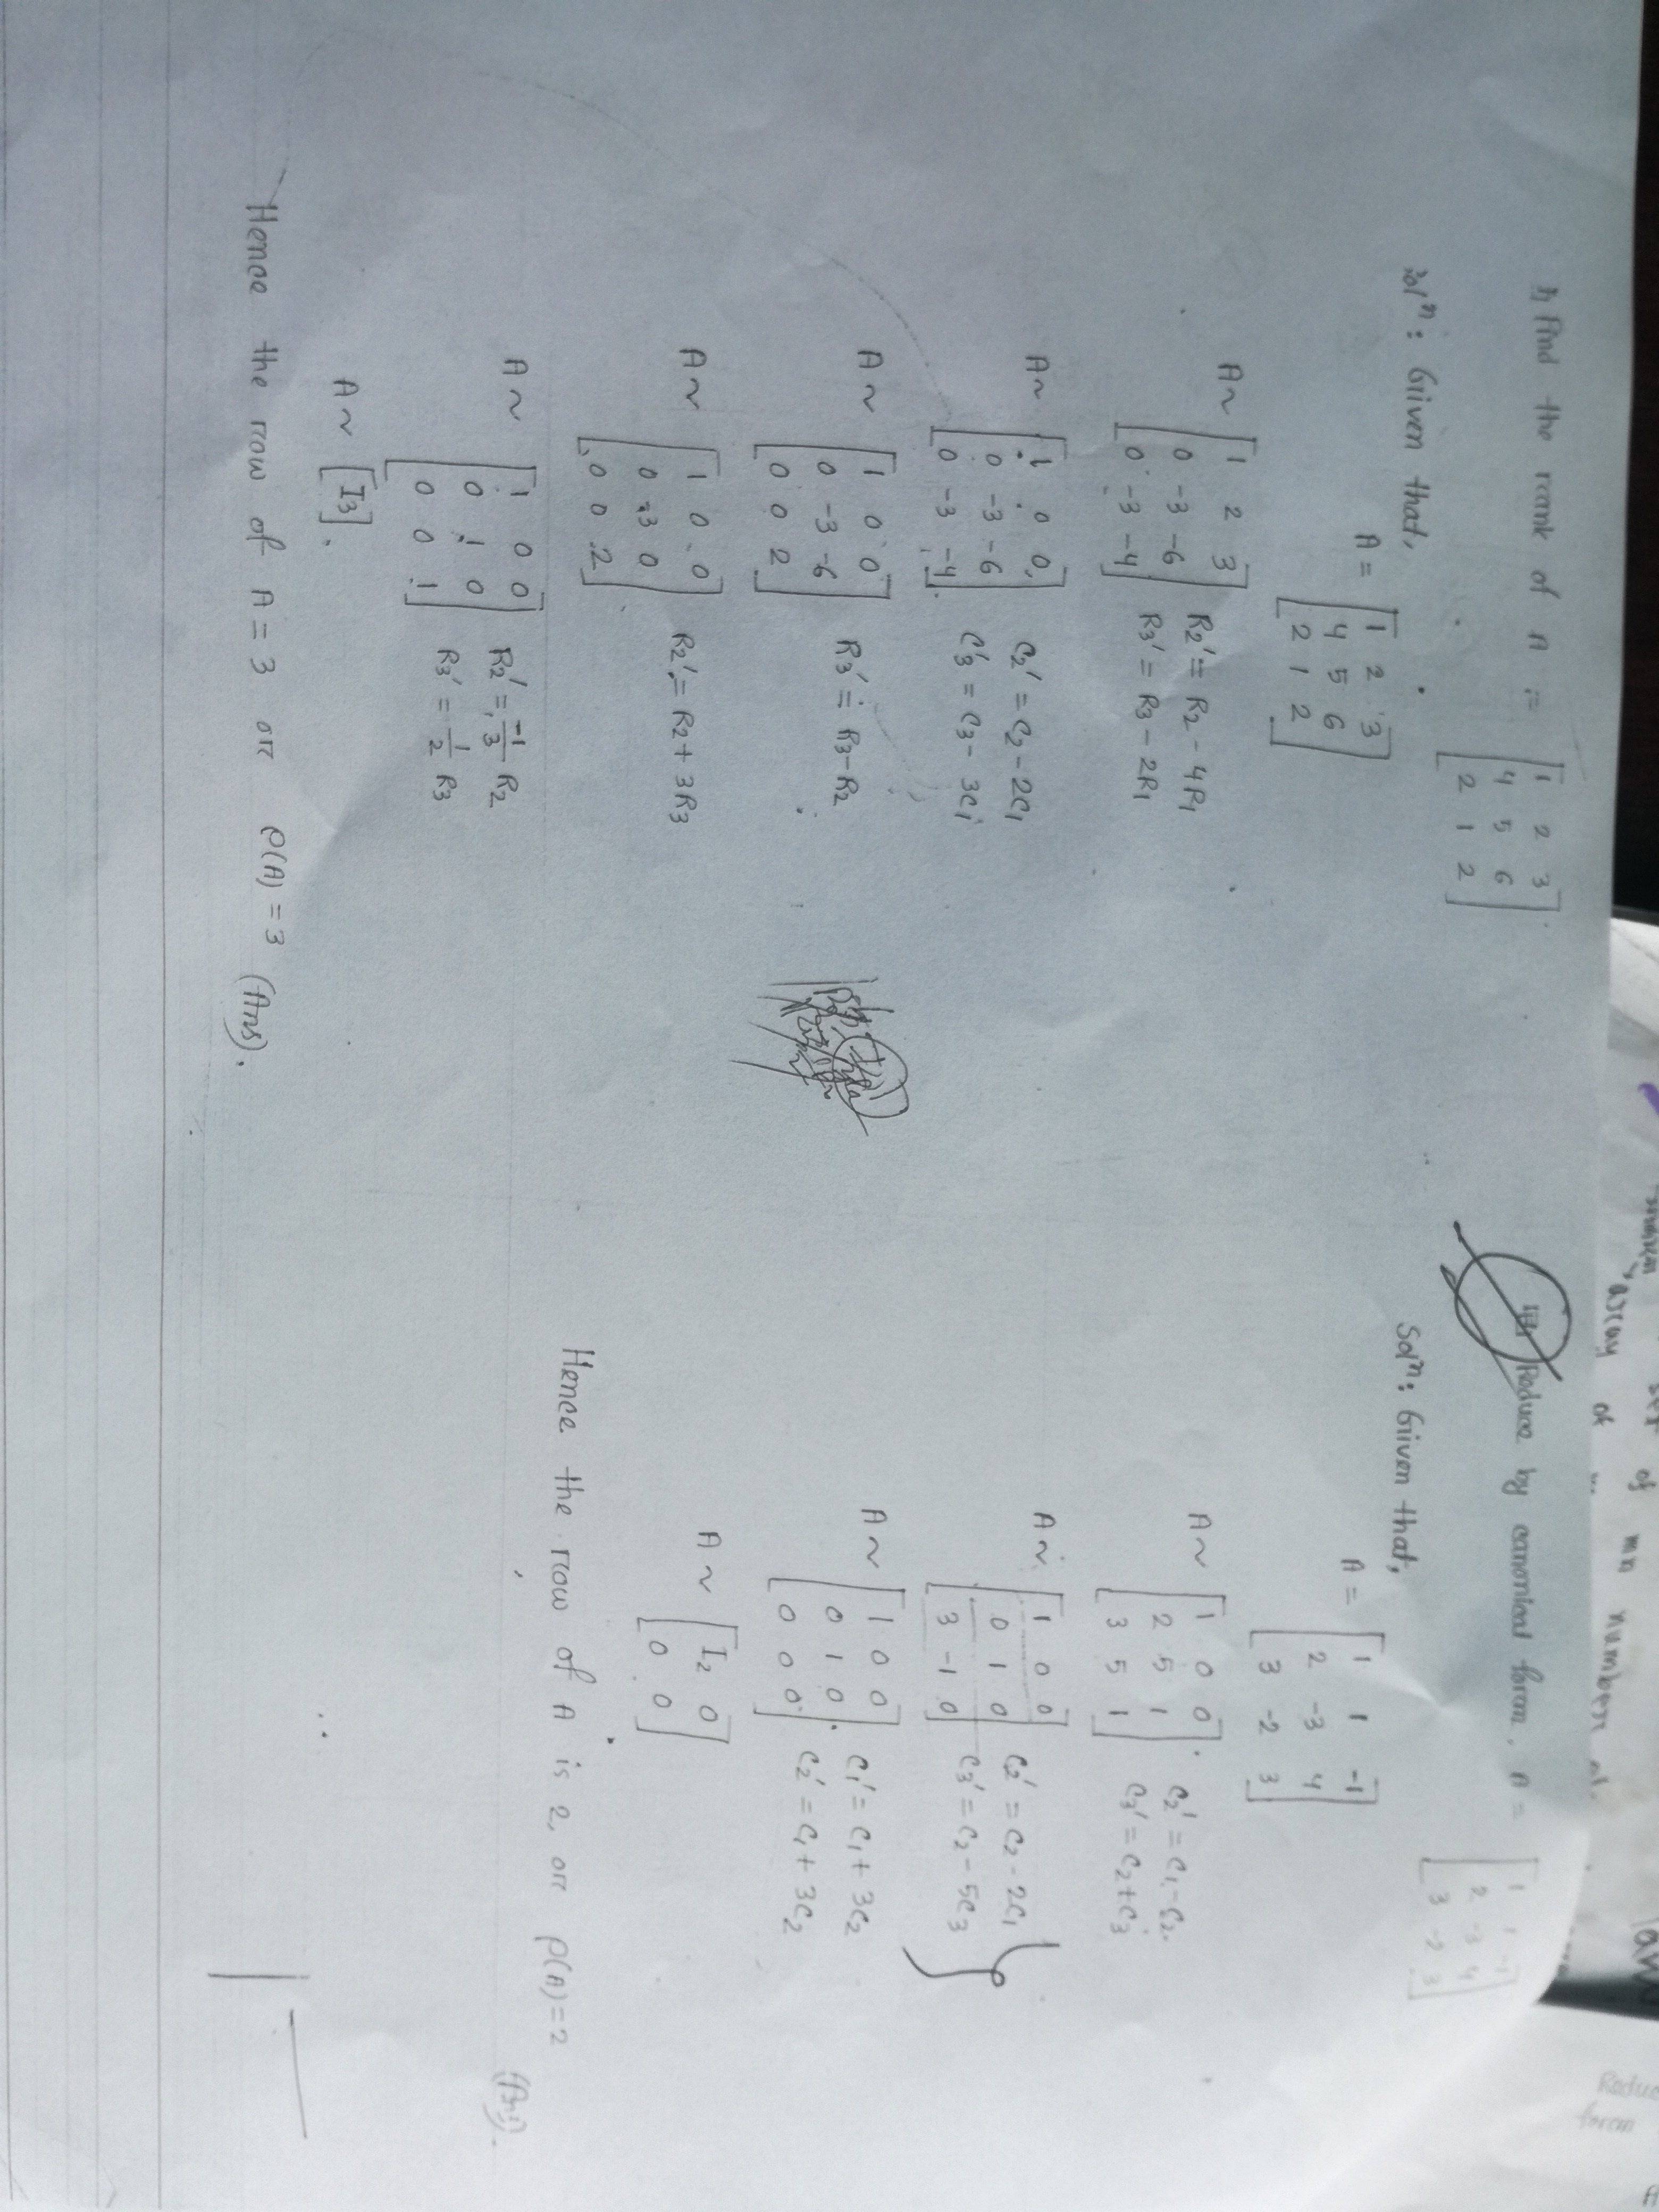 set of mn numbers
array of
Find the rank of A = [1 2 3
4 5 6
2 1 2]
Solⁿ: Given that,
A = [1 2 3
4 5 6
2 1 2]
A ~ [1 2 3
0 -3 -6
0 -3 -4]
R2' = R2 - 4R1
R3' = R3 - 2R1
A ~ [1 0 0
0 -3 -6
0 -3 -4]
C2' = C2 - 2C1
C'3 = C3 - 3C1
A ~ [1 0 0
0 -3 -6
0 0 2]
R3' = R3 - R2
A ~ [1 0 0
0 -3 0
0 0 2]
R2' = R2 + 3R3
A ~ [1 0 0
0 1 0
0 0 1]
R2' = -1/3 R2
R3' = 1/2 R3
A ~ [I3].
Hence the row of A = 3 or ρ(A) = 3 (Ans).
Reduce by canonical form. A = [1 1 -1
2 -3 4
3 -2 3]
Solⁿ: Given that,
A = [1 1 -1
2 -3 4
3 -2 3]
A ~ [1 0 0
2 5 1
3 5 1]
C2' = C1 - C2
C3' = C2 + C3
A ~ [1 0 0
0 1 0
3 -1 0]
C2' = C2 - 2C1
C3' = C2 - 5C3
A ~ [1 0 0
0 1 0
0 0 0]
C1' = C1 + 3C2
C2' = C1 + 3C2
A ~ [I2 0
0 0]
Hence the row of A is 2, or ρ(A) = 2
(Ans).